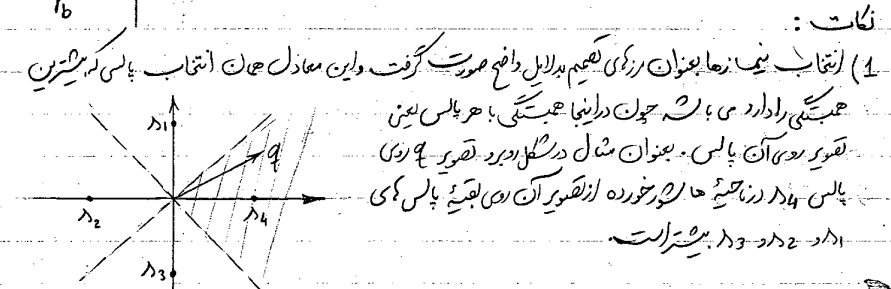 T_b
نکات :
1) انتخاب نیمسازها بعنوان مرزهای تصمیم بدلایل واضح صورت گرفت و این معادل همان انتخاب پالسی که بیشترین
همبستگی را دارد می باشد چون در اینجا همبستگی با هر پالس یعنی
تصویر روی آن پالس . بعنوان مثال در شکل روبرو تصویر q روی
پالس s4 در ناحیهٔ هاشور خورده از تصویر آن روی بقیهٔ پالس های
s1 و s2 و s3 بیشتر است.
s1
q
s2
s4
s3